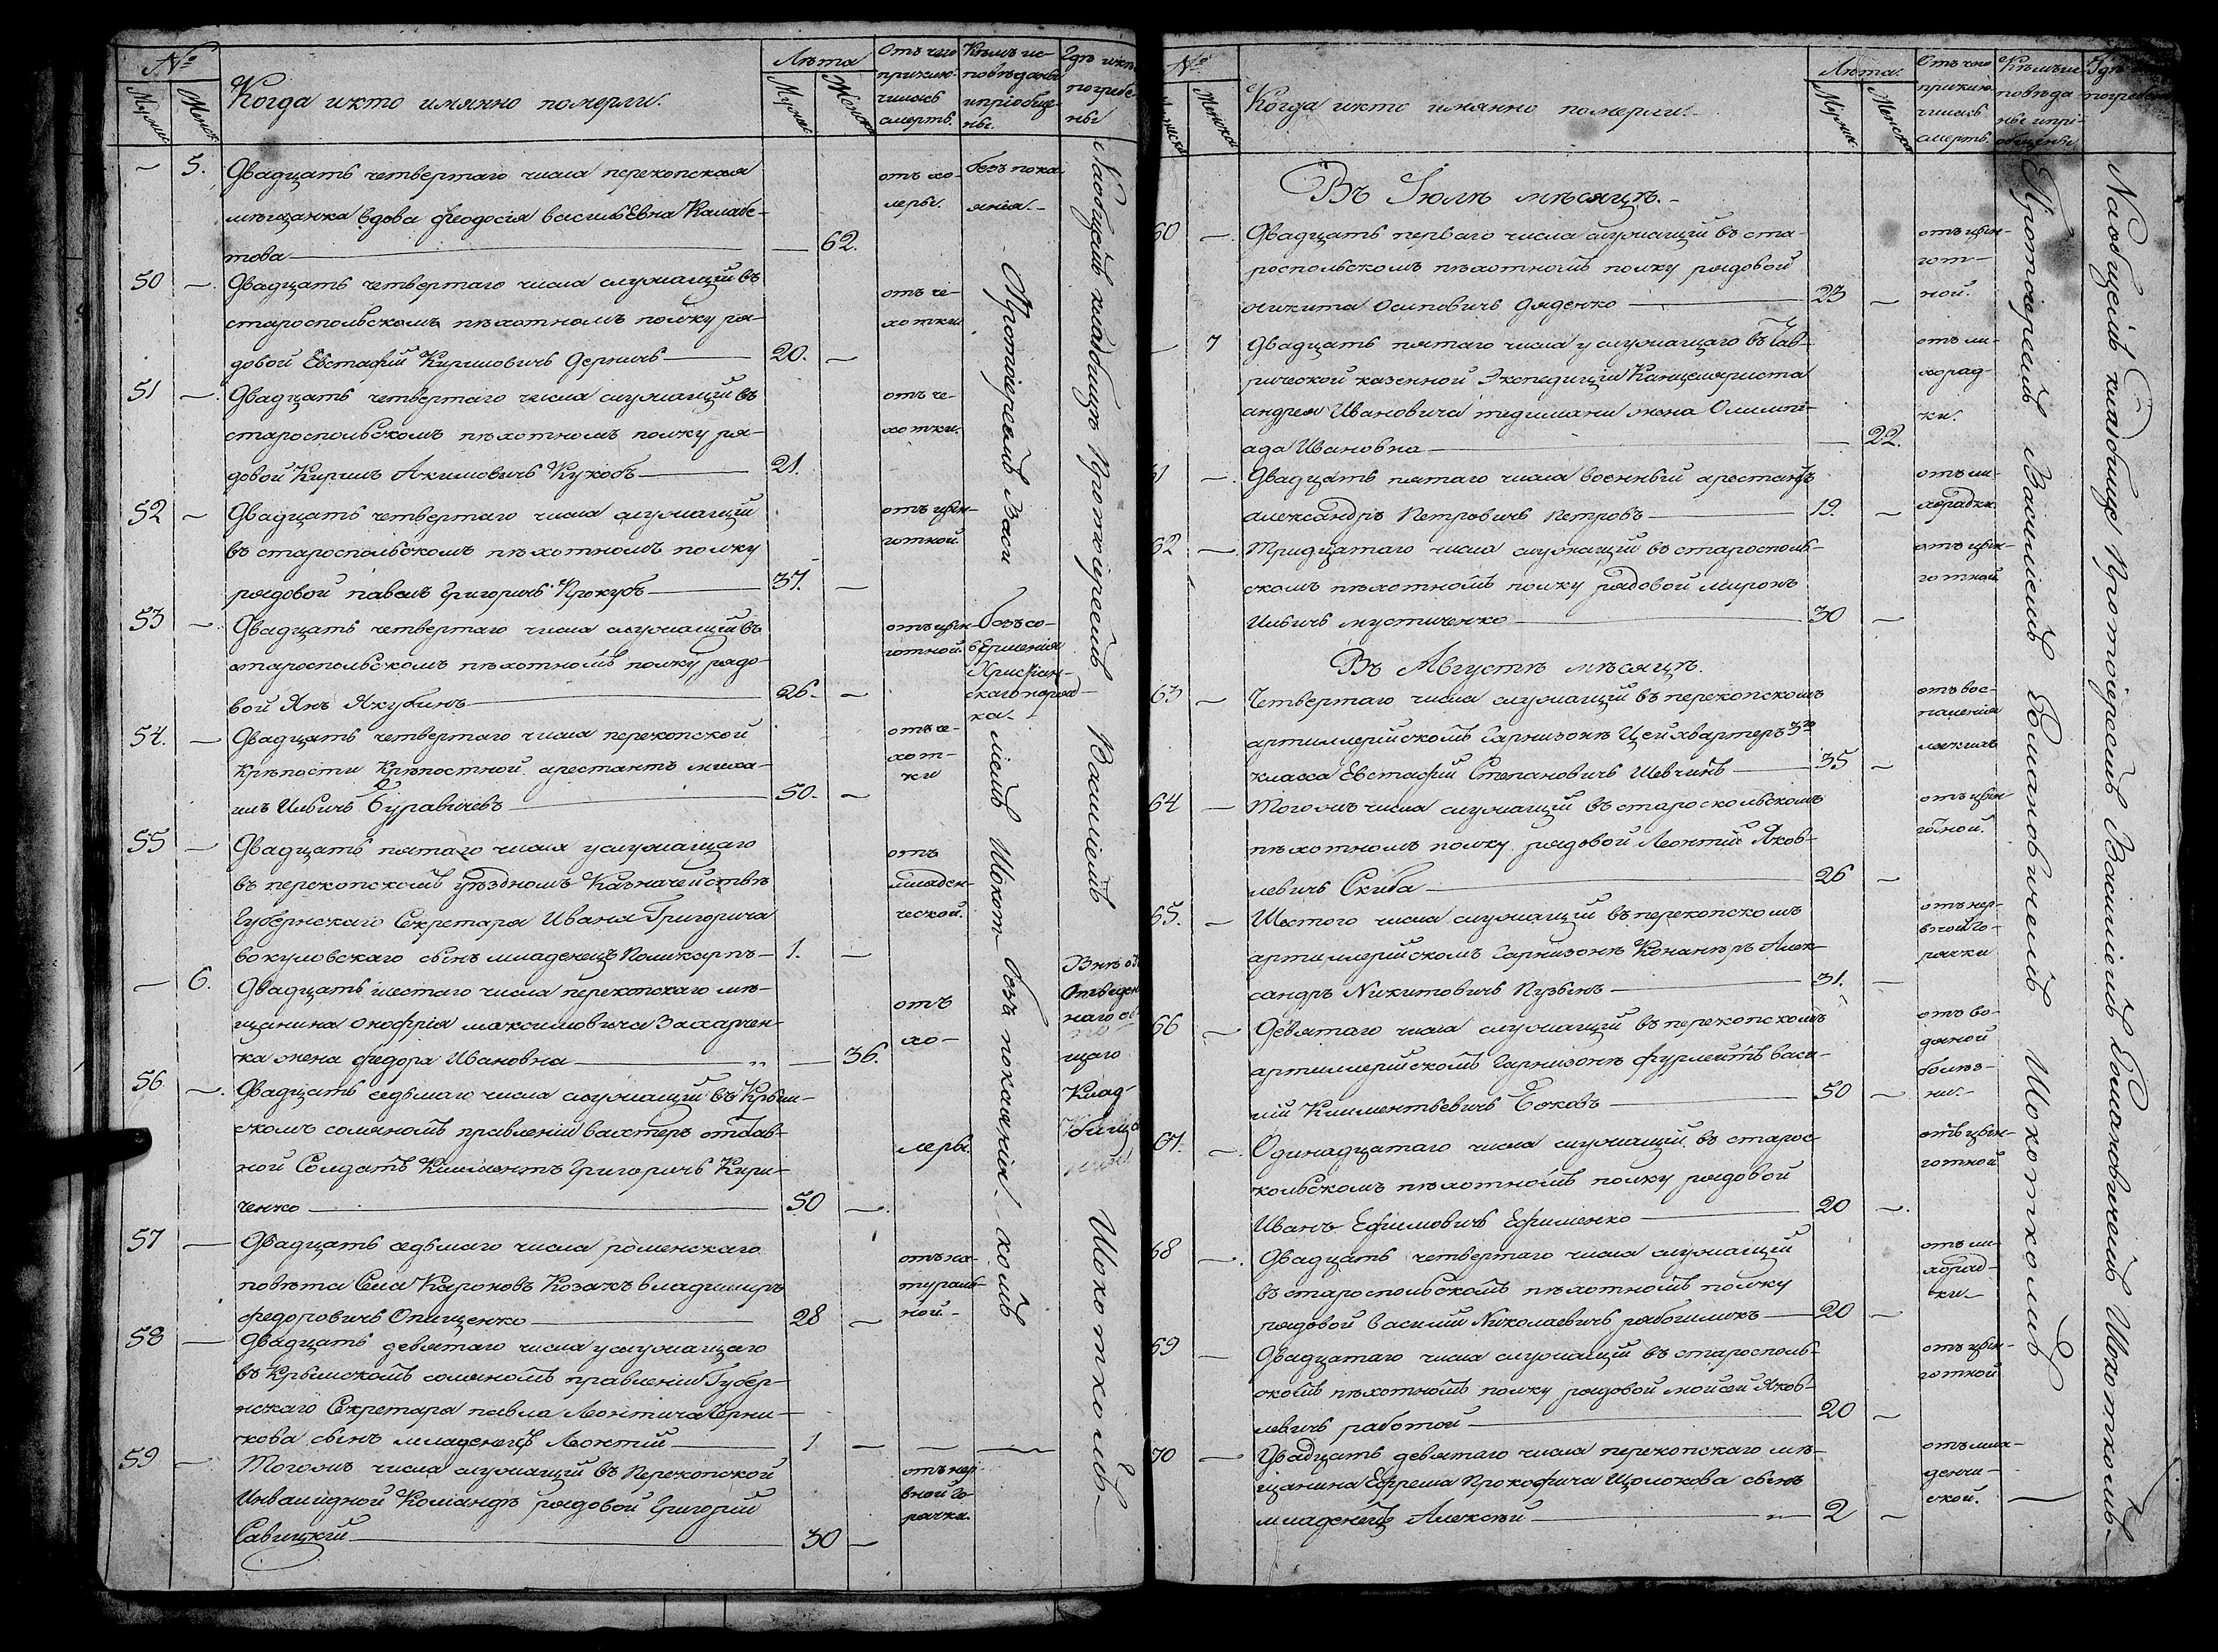 №
Мужеск
Женск
Когда и кто имянно померли.
Лѣта
Мужес
Женска
Отъ чего
приклю-
чилась
смерть.
Кѣмъ ис-
повѣданы
и пріобще-
ны.
Гдѣ и кѣмъ
погребе-
ны
— 5. Двадцать четвертаго числа перекопская
мѣщанка вдова Феодосія васильЕвна Калабе-
това — 62.
отъ хо-
леры.
безъ пока-
янія.
50 — Двадцать четвертаго числа служащій въ
староскольскомъ пѣхотномъ полку ря-
довой Евстафій Кириловичь Дерничь — 20. —
отъ че-
хотки
51 — Двадцать четвертаго числа служащій въ
староскольскомъ пѣхотномъ полку ря-
довой Кирилъ Акимовичь Кухобъ — 21.
отъ че-
хотки.
52 — Двадцать четвертаго числа служащій
въ староскольскомъ пѣхотномъ полку
рядовой павелъ Григоричь Крокубъ — 37. —
отъ цын-
готной.
53 — Двадцать четвертаго числа служащій въ
староскольскомъ пѣхотномъ полку рядо-
вой Янъ Якубинъ — 26. —
отъ цын-
готной.
безъ со-
вЕршенія
Христіян-
скаго поряд-
ка.
54. — Двадцать четвертаго числа перекопской
Крѣпости Крѣпостной арестантъ миха-
илъ Ильичь Буравичевъ — 50. —
отъ че-
хот-
ки
55 — Двадцать пятаго числа у служащаго
въ перекопскомъ уѣздномъ Казначействѣ
Губернскаго Секретаря Ивана Григорича
вокуловскаго сынъ младенецъ Поликарпъ — 1. —
отъ
младен-
ческой.
— 6. Двадцать шестаго числа перекопскаго мѣ-
щанина Онофрія максимовича Захарчен-
ка жена федора Ивановна — 36.
отъ
хо-
леры.
Внѣ
Отведен
наго
щаго
Клад-
бища
56 — Двадцать седьмаго числа служащій въ Крым-
скомъ соляномъ правленіи вахтеръ отстав-
ной Солдатъ Климентъ Григоричь Кири-
ченко — 50 —
57 — Двадцать седьмаго числа роменскаго
повѣта Села Кароновъ Козакъ владимиръ
федоровичь Онищенко — 28 —
отъ на-
тураль-
ной.
58 — Двадцать девятаго числа у служащаго
въ Крымскомъ соляномъ правленіи Губер-
нскаго Секретаря павла Леонтича Черни-
кова сынъ младенецъ Леонтій — 1 — — —
59 — Того жъ числа служащій въ Перекопской
Инвалидной Командѣ рядовой Григорій
Савицкій — 30 —
отъ нер
вной го-
рячки.
Протоіереомъ Васи
ліемъ Шокот-
безъ покаянія.
комъ
На общемъ кладбищѣ Протоіереемъ Василіемъ Шокоткомъ
№
Мужеска
Женска
Когда и кто имянно померли.
Лѣта.
Мужеск
Женска
Отъ чего
приклю-
чилась
смерть.
Кѣмъ ис-
повѣда
ны и прі-
общены
Гдѣ
погребены
Въ Іюлѣ мѣсяцѣ.
60 — Двадцать перваго числа служащій въ ста-
роскольскомъ пѣхотномъ полку рядовой
никита Осиповичь Дяденко — 23 —
отъ цын-
гот-
ной.
— 7 Двадцать пятаго числа у служащаго въ Тав-
рической казенной Экспедиціи Канцеляриста
андрея Ивановича жена Олимпі-
ада Ивановна — 22.
отъ ли-
хорад-
ки.
61 — Двадцать пятаго числа военный арестантъ
александръ Петровичь Петровъ — 19. —
отъ ли-
хорадки
62 — Тридцатаго числа служащій въ староскольт-
скомъ пѣхотномъ полку рядовой миронъ
Ильичь мустиченко — 30 —
отъ цын-
готной
Въ Августѣ мѣсяцѣ.
63 — Четвертаго числа служащій въ перекопскомъ
артиллерійскомъ Гарнизонѣ Цейхвартеръ 3го
класса Евстафій Степановичь Шевчинъ — 35 —
отъ вос-
паленія
легкихъ
64 — Того жъ числа служащій въ староскольскомъ
пѣхотномъ полку рядовой Леонтій Яков-
левичь Скиба — 26 —
отъ цын
готной.
65. — Шестого числа служащій въ перекопскомъ
артиллерійскомъ Гарнизонѣ Конанѣръ Алек-
сандръ Никитовичь Пузынъ — 31. —
отъ нер-
вной го-
рячки
66 — Девятаго числа служащій въ перекопскомъ
артиллерійскомъ Гарнизонѣ фурлейтъ васи-
лій Климентьевичь Боковъ — 50 —
отъ во-
дяной
болѣз-
ни.
67. — Одинадцатаго числа служащій въ старос-
кольскомъ пѣхотномъ полку рядовой
Иванъ Ефимовичь Ефименко — 20 —
отъ цын-
готной
68 — Двадцать четвертаго числа служащій
въ староскольскомъ пѣхотномъ полку
рядовой василій Николаевичь рябошликъ — 20 —
отъ ли-
хорад-
ки
69 — Двадцатаго числа служащій въ старосколь-
скомъ пѣхотномъ полку рядовой мойсей Яков-
левичь работой — 20 —
отъ цын-
готной
70 — Двадцать девятаго числа перекопскаго мѣ-
щанина Ефрема Прокофича Щолокова сынъ
младенецъ Алексѣй — 2 —
отъ мла-
денчи-
ской.
Протоіереемъ Василіемъ Романовичемъ Шокоткомъ
На общемъ кладбищѣ Протоіереемъ Василіемъ Романовичемъ Шокоткомъ